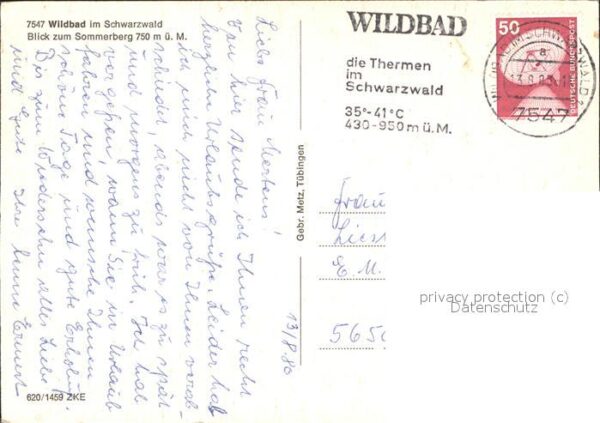 7547 Wildbad im Schwarzwald
Blick zum Sommerberg 750 m ü. M.
Liebe Frau Mertens!
Von hier sende ich Ihnen recht
herzliche Urlaubsgrüße. Leider hab
ich mich nicht von Ihnen verab-
schiedet, abends war es zu spät
und morgens zu früh. Ich hab
vergessen, wann Sie in Urlaub
fahren und wünsche Ihnen
schöne Tage und gute Erholung.
Bis zum Wiedersehn alles Liebe
und Gute Ihre
13/8 80
620/1459 ZKE
Gebr. Metz, Tübingen
WILDBAD
die Thermen
im
Schwarzwald
35°-41°C
430-950m ü. M.
50
DEUTSCHE BUNDESPOST
a
7547
Frau
E. M.
565
privacy protection (c)
Datenschutz